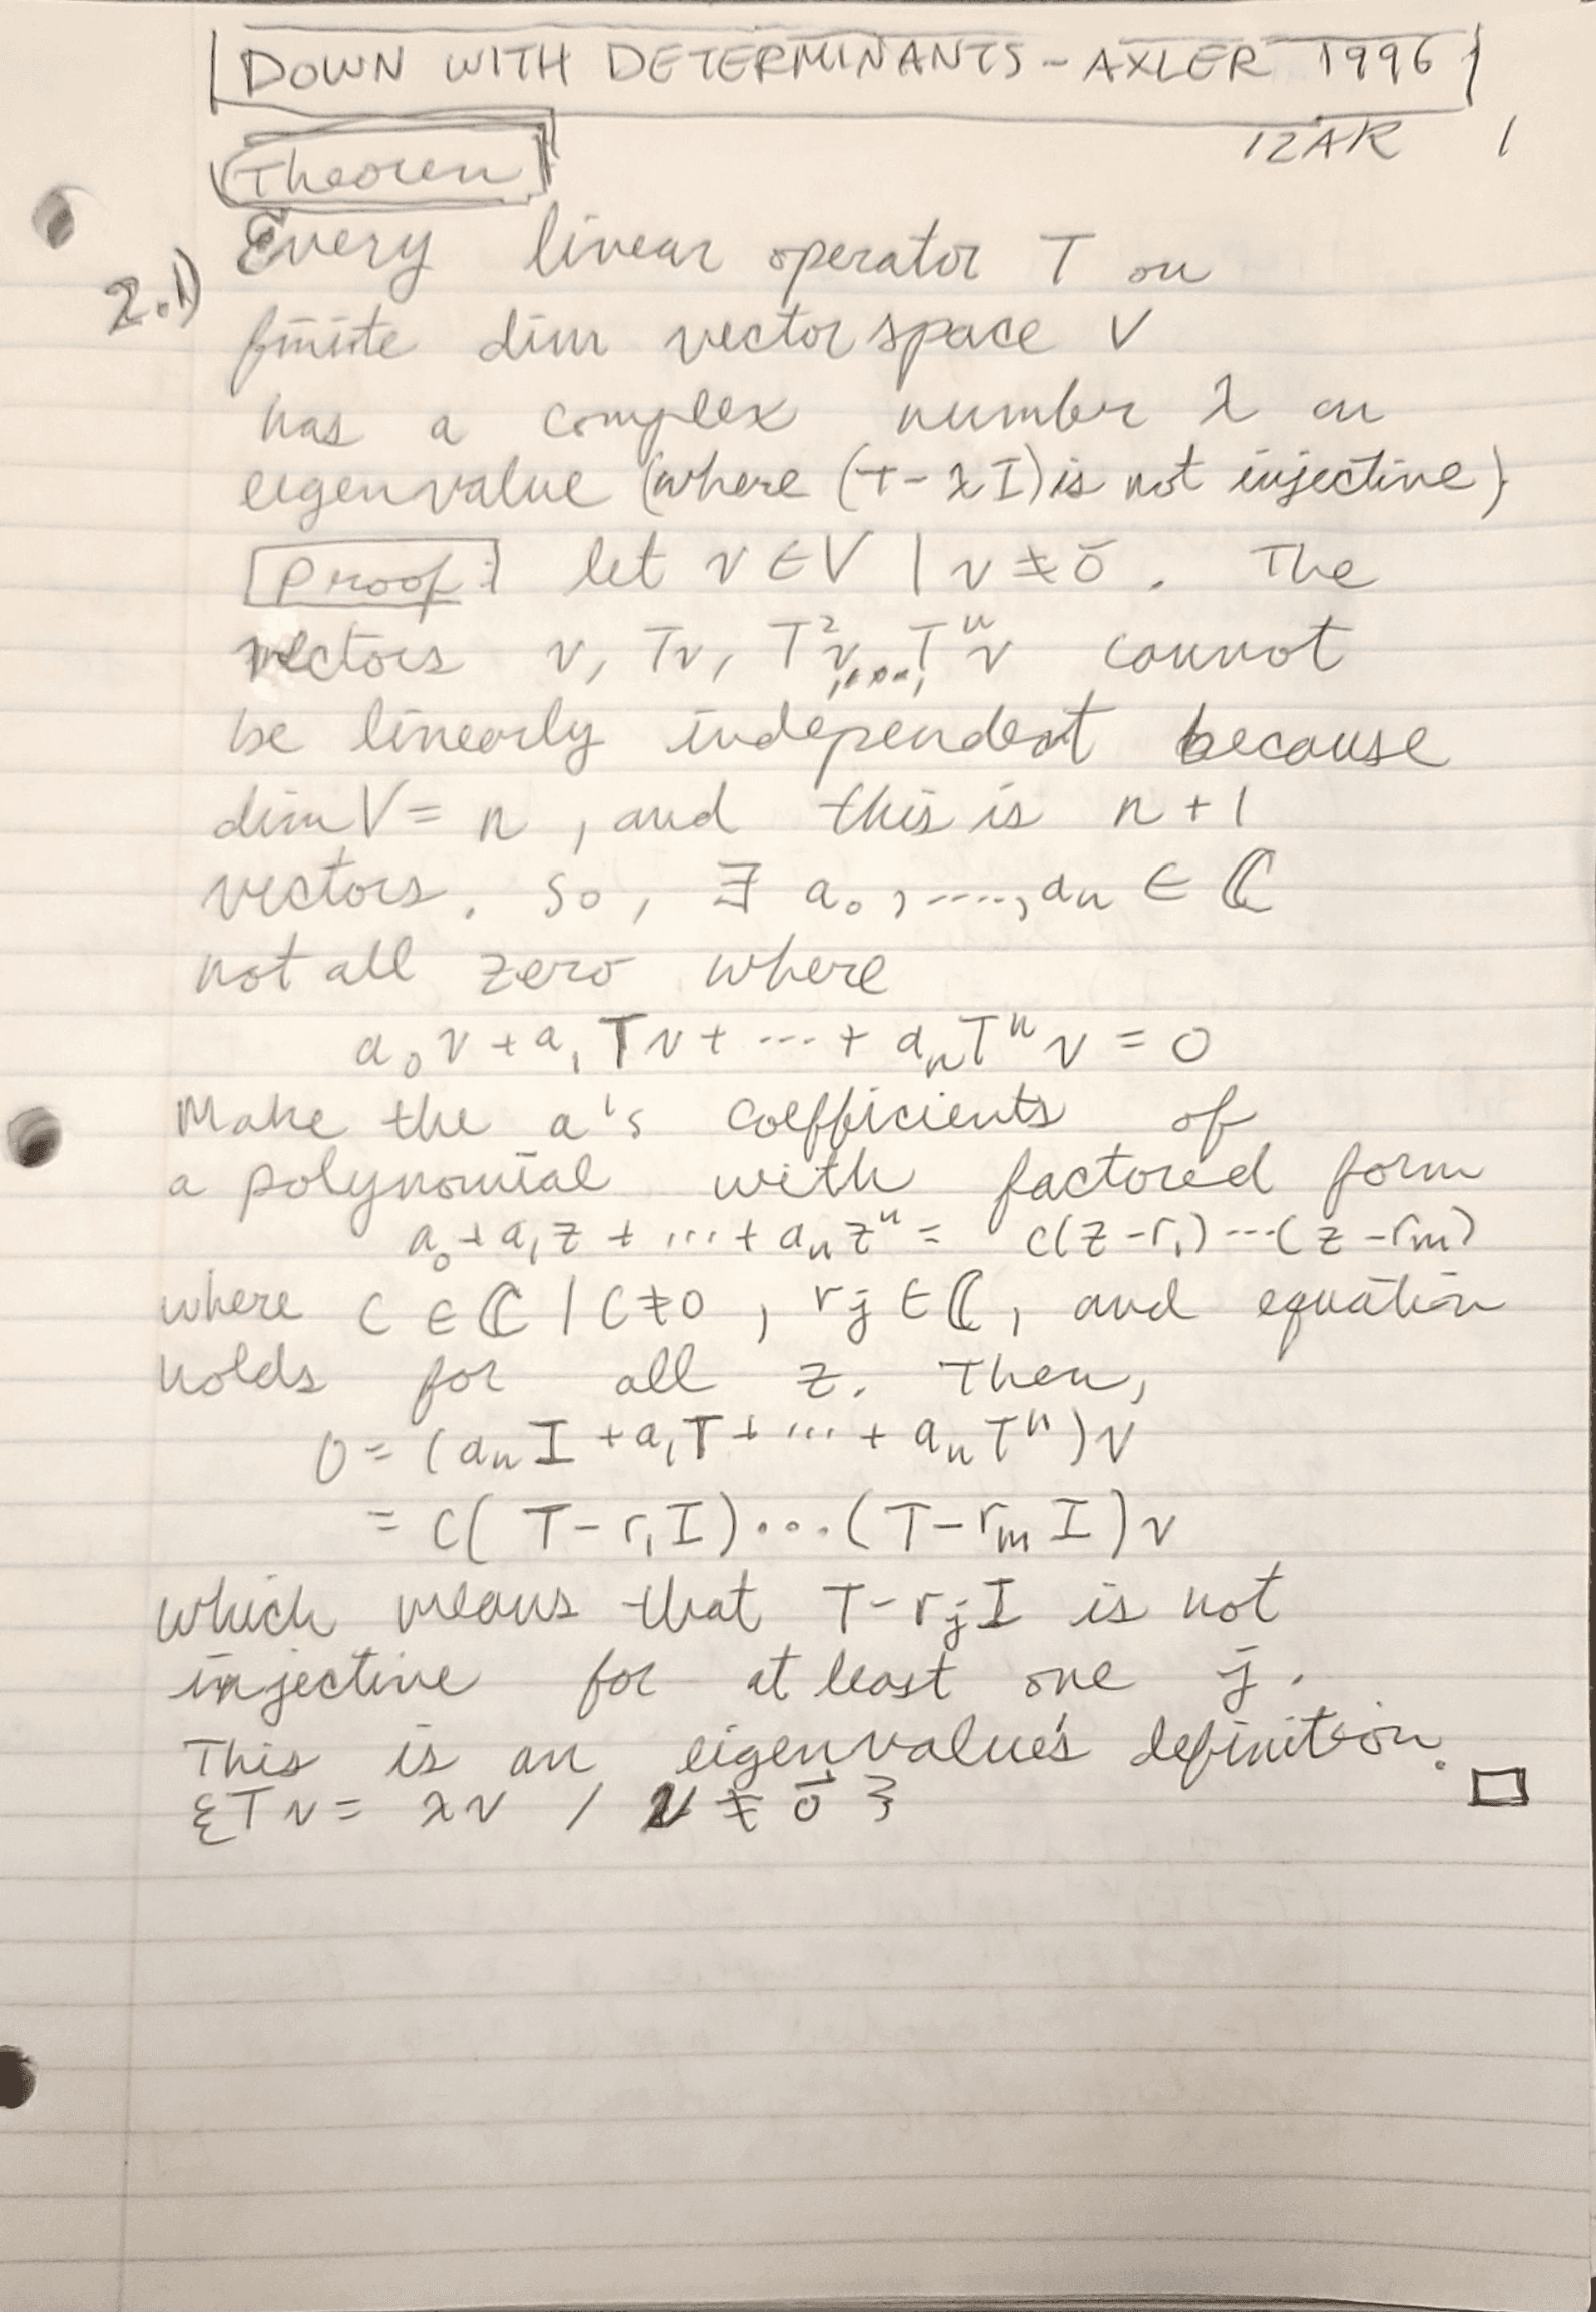 DOWN WITH DETERMINANTS - AXLER 1996
IZAR 1
Theorem
2.1) Every linear operator T on
finite dim vector space V
has a complex number λ an
eigenvalue (where (T-λI) is not injective)
Proof: let v ∈ V | v ≠ 0̄. The
vectors v, Tv, T²v, ..., Tⁿv cannot
be linearly independent because
dim V = n, and this is n+1
vectors. So, ∃ a₀, ...., aₙ ∈ ℂ
not all zero where
a₀v + a₁Tv + ... + aₙTⁿv = 0
Make the a's coefficients of
a polynomial with factored form
a₀ + a₁z + ... + aₙzⁿ = c(z-r₁)---(z-rₘ)
where c ∈ ℂ | c≠0, rⱼ ∈ ℂ, and equation
holds for all z. Then,
0 = (aₙI + a₁T + ... + aₙTⁿ)v
= c(T-r₁I)...(T-rₘI)v
which means that T-rⱼI is not
injective for at least one j.
This is an eigenvalue's definition.
{Tv = λv / v ≠ 0⃗} □